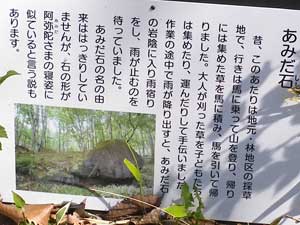 あみだ石
昔、このあたりは地元・林地区の採草
地で、行きは馬に乗って山を登り、帰り
には集めた草を馬に積み、馬を引いて帰
りました。大人が刈った草を子どもたち
は集めたり、運んだりして手伝いました
作業の途中で雨が降り出すと、あみだ石
の岩陰に入り雨宿り
をし、雨が止むのを
待っていました。
あみだ石の名の由
来ははっきりしてい
ませんが、石の形が
阿弥陀さまの寝姿に
似ていると言う説も
あります。